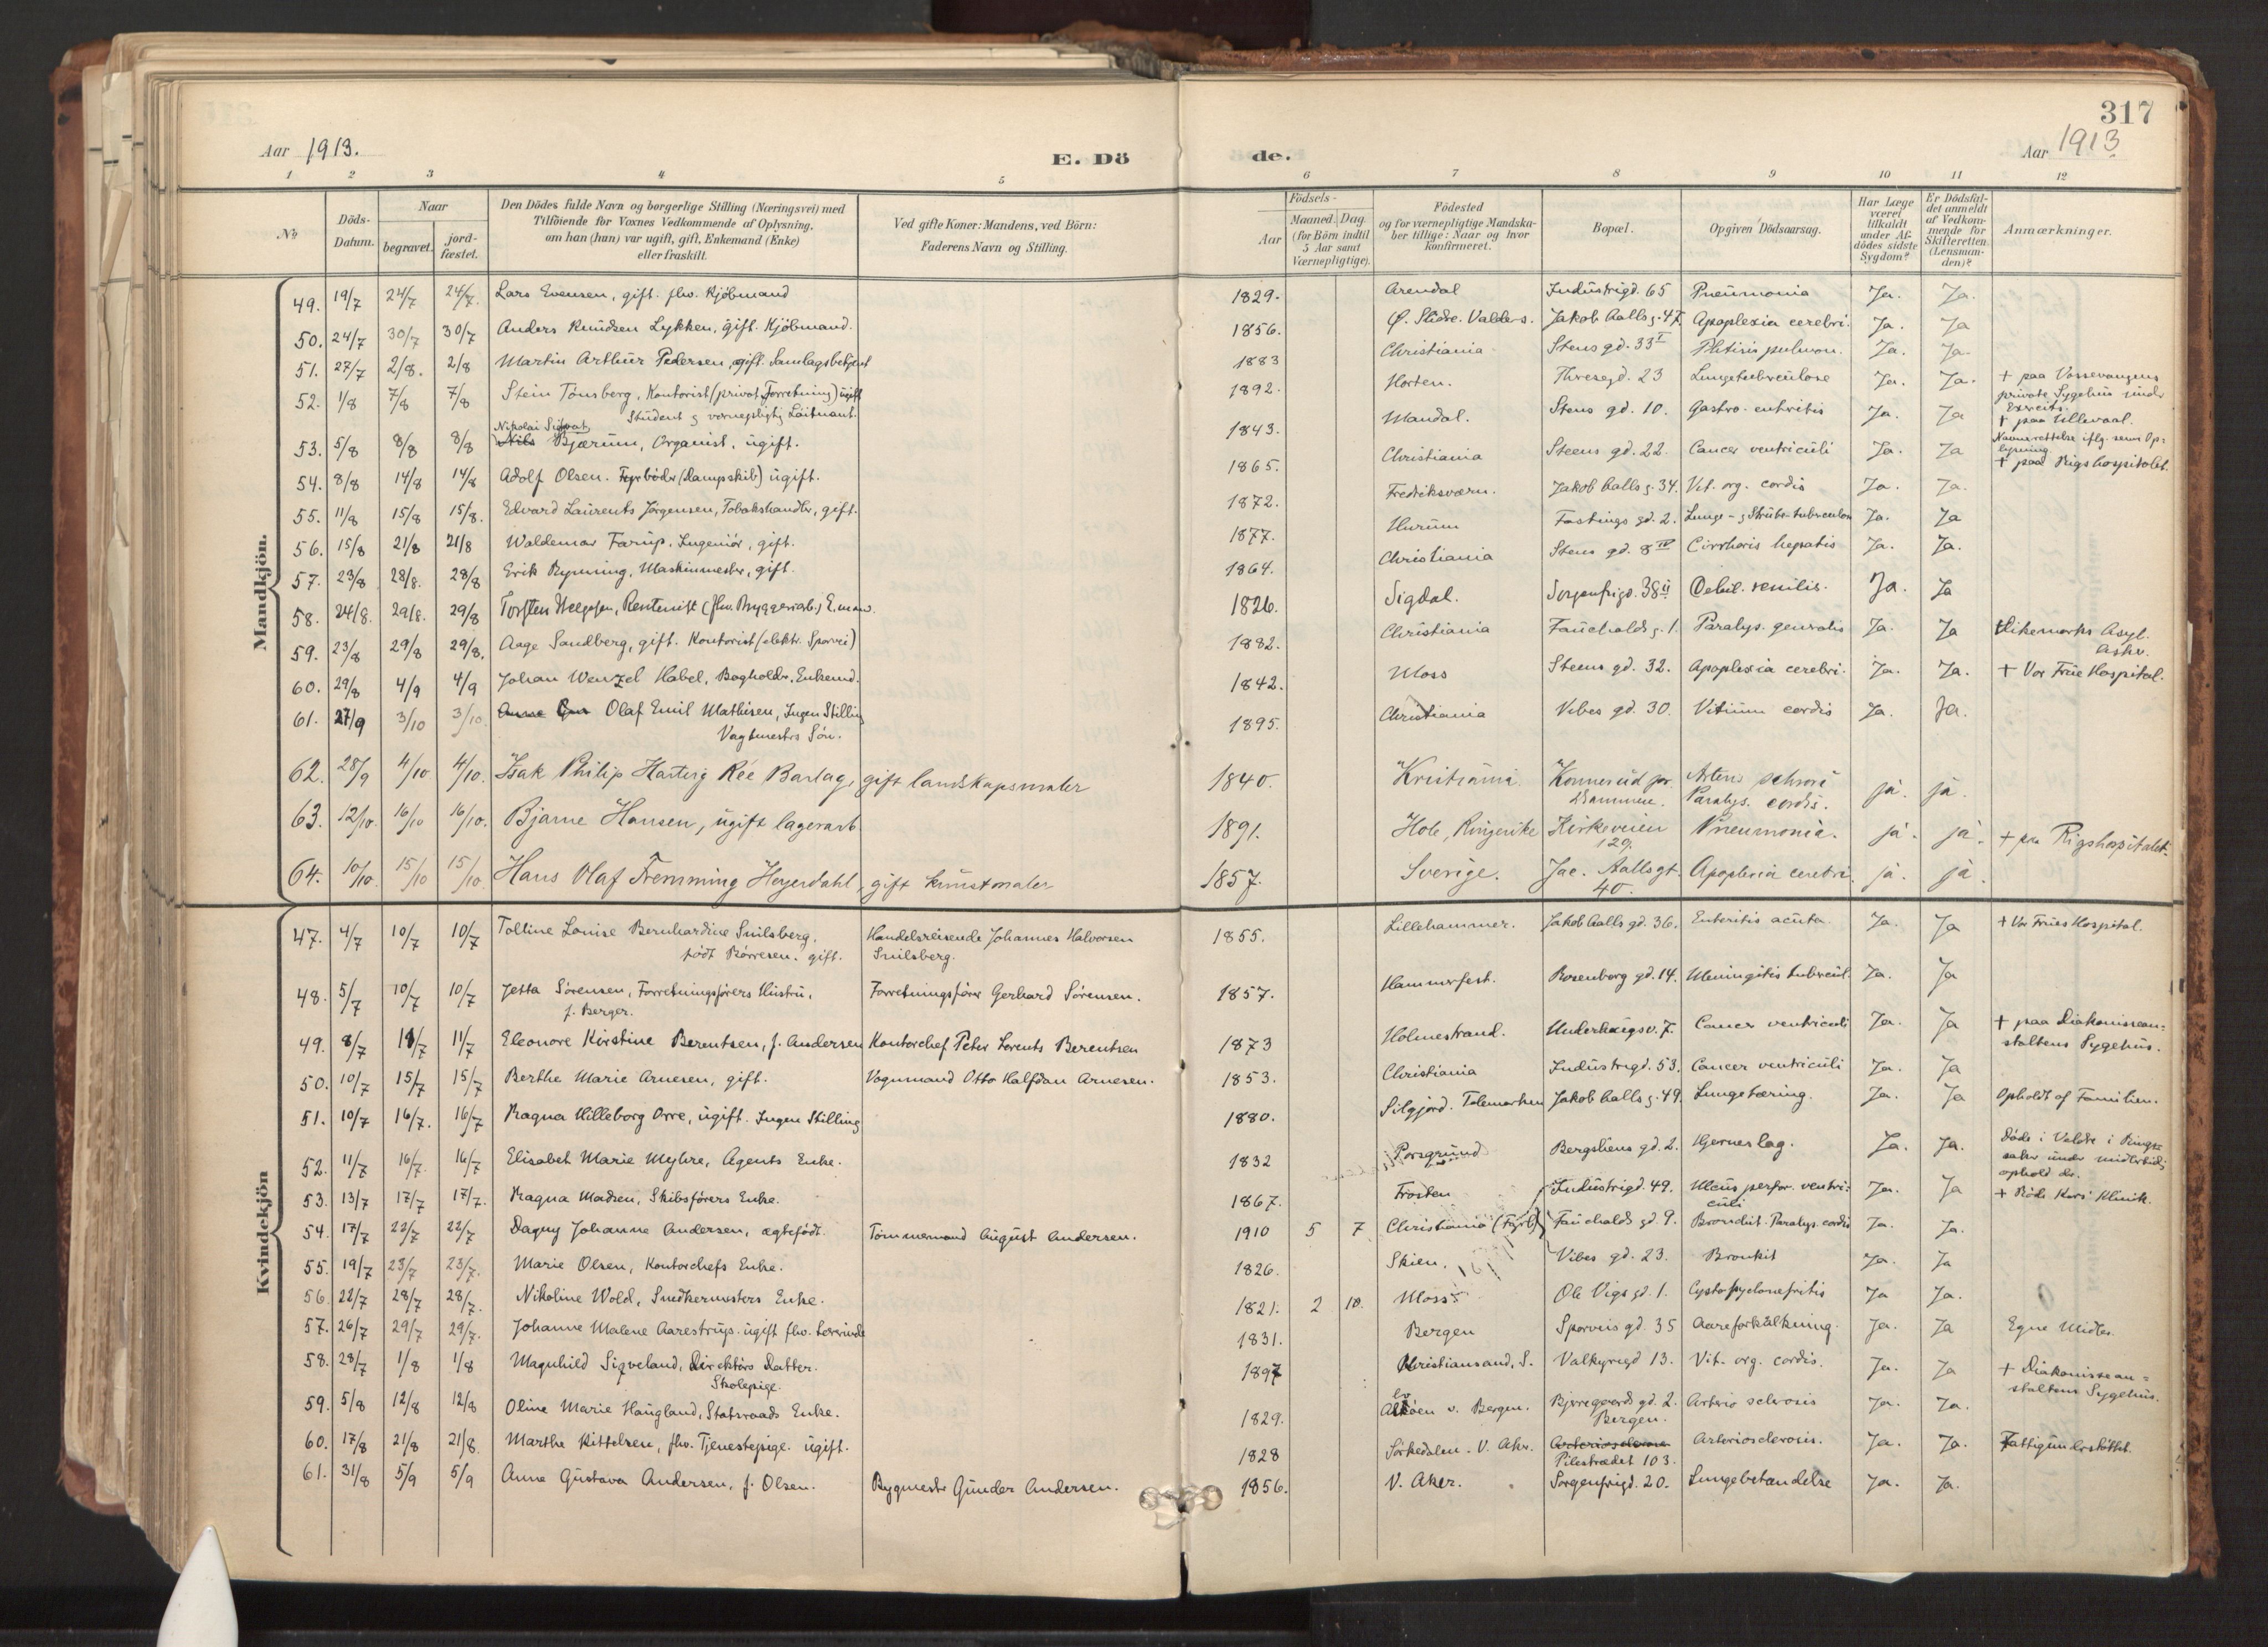 317
Aar 1913.
E. Dö
de.
Aar 1913
1 2 3 4 5 6 7 8 9 10 11 12
No
Döds-Datum.
Naar
begravet.
jord-fæstet.
Den Dödes fulde Navn og borgerlige Stilling (Næringsvei) med
Tilföiende for Voxnes Vedkommende af Oplysning,
om han (hun) var ugift, gift, Enkemand (Enke)
eller fraskilt.
Ved gifte Koner: Mandens, ved Börn:
Faderens Navn og Stilling.
Födsels-
Aar
Maaned. Dag.
(for Börn indtil
5 Aar samt
Værnepligtige).
Födested
og for værnepligtige Mandska-
ber tillige: Naar og hvor
konfirmeret.
Bopæl.
Opgiven Dödsaarsag.
Har Læge
været
tilkaldt
under Af-
dödes sidste
Sygdom?
Er Dödsfal-
det anmeldt
af Vedkom-
mende for
Skifteretten
(Lensman-
den)?
Anmærkninger.
Mandkjön.
49. 19/7 24/7 24/7. Lars Evensen, gift. fhv. Kjöbmand 1829. Arendal Industrigd. 65 Pneumonia Ja. Ja.
50. 24/7 30/7 30/7 Anders Knudsen Lykken, gift. Kjöbmand. 1856. Ø. Slidre. Valders. Jakob Aalls g. 47. Apoplexia cerebri. Ja. Ja
51. 27/7 2/8. 2/8 Martin Arthur Pedersen, gift. Samlagsbetjent 1883 Christiania Stens gd. 33 I Phtisis pulmon. Ja. Ja.
52. 1/8 7/8 7/8 Stein Tönsberg, Kontorist (privat Forretning) ugift 1892. Horten. Thresegd. 23 Lungetuberculose Ja. Ja. + paa Vossevangens
Student og vernepligtig Løitnant.
private Sygehus under
Exercits.
53. 5/8 8/8 8/8 Nils Bjærum, Organist, ugift. 1843. Mandal. Stens gd. 10. Gastro-entritis Ja. Ja + paa Ullevaal.
Nikolai Sigvat
Navnerettelse iflg. senere Op-
lysning.
54. 8/8 14/8 14/8 Adolf Olsen. Fyrböder (Dampskib) ugift. 1865. Christiania Steens gd. 22. Cancer ventriculi Ja. Ja + paa Rigshospitalet.
55. 11/8 15/8 15/8. Edvard Laurents Jörgensen, Tobakshandler, gift. 1872. Fredriksværn. Jakob Aalls g. 34. Vit. org. cordis Ja. Ja.
56. 15/8 21/8 21/8 Waldemar Farup, Ingeniör, gift. 1877. Hurum Fastings gd. 2. Lunge- og Strube-tuberculose Ja. Ja
57. 23/8 28/8. 28/8 Erik Rynning, Maskinmester, gift. 1864. Christiania Stens gd. 8 IV Cirrhoris hepatis Ja. Ja.
58. 24/8. 29/8. 29/8 Torsten Helgesen, Rentenist (fhv. Bryggeriarb.) E.mand. 1826. Sigdal. Sorgenfrigd. 38 II Debil. senilis. Ja. Ja
59. 23/8 29/8 29/8. Aage Sandberg, gift. Kontorist (elektr. Sporvei) 1882. Christiania Fauchalds g. 1. Paralys. generalis Ja. Ja Dikemarks Asyl.
Asker.
60. 29/8 4/9 4/9 Johan Wenzel Habel, Bogholder. Enkemd. 1842. Moss Steens gd. 32. Apoplexia cerebri. Ja. Ja. + Vor Frue Hospital.
61. 27/9 3/10 3/10. Olaf Emil Mathisen, Ingen Stilling 1895. Christiania Vibes gd. 30. Vitium cordis Ja. Ja.
Vagtmesters Sön.
62. 28/9 4/10 4/10. Isak Philip Hartvig Reé Barlag, gift landskapsmaler 1840. Kristiania Konnerud pr. Drammen. Paralys. cordis. ja. ja.
63. 12/10. 16/10 16/10. Bjarne Hansen, ugift lagerarb. 1891. Hole, Ringerike Kirkeveien 129. Pneumonia. ja. ja. + paa Rigshospitalet.
64. 10/10. 15/10 15/10. Hans Olaf Fremming Heyerdahl, gift kunstmaler 1857. Sverige. Jac. Aallsgt. 40. Apoplexia cerebri. ja. ja.
Kvindekjön
47. 4/7 10/7 10/7 Tolline Louise Bernhardine Snilsberg, Handelsreisende Johannes Halvorsen 1855. Lillehammer. Jakob Aalls gd. 36. Enteritis acuta Ja. Ja + Vor Frues Hospital.
födt Börresen. gift. Snilsberg.
48. 5/7 10/7 10/7 Jetta Sörensen, Forretningsförers Hustru, Forretningsförer Gerhard Sörensen. 1857. Hammerfest. Rosenborg gd. 14. Meningitis tubercul. Ja. Ja
f. Berger.
49. 8/7 11/7 11/7 Eleonore Kirstine Berentsen, f. Andersen Kontorchef Peter Lorents Berentsen 1873 Holmestrand. Underhaugsv. 7. Cancer ventriculi Ja. Ja + paa Diakonissean-
staltens Sygehus.
50. 10/7 15/7 15/7 Berthe Marie Arnesen, gift. Vognmand Otto Halfdan Arnesen. 1853. Christiania Industrigd. 53. Cancer ventriculi Ja. Ja
51. 10/7 16/7. 16/7 Ragna Hilleborg Orre, ugift. Ingen Stilling 1880. Silgjord. Telemarken Jakob Aalls g. 49. Lungetæring. Ja. Ja Opholdt af Familien.
52. 11/7 16/7. 16/7 Elisabeth Marie Myhre, Agents Enke. 1832 Porsgrund Bergsliens gd. 2. Hjerneslag. Ja. Ja. Döde i Veldre i Rings-
aker under midlertidig
ophold der.
53. 13/7 17/7 17/7. Ragna Madsen, Skibsförers Enke. 1867. Frosten Industrigd. 49. Ulcus perfor. ventri-
culi Ja. Ja + Röde Kors' Klinik.
54. 17/7 22/7 22/7 Dagny Johanne Andersen, ægtefödt. Tömmermand August Andersen. 1910 5 7 Christiania Fauchalds gd 9. Bronchit. Paralys. cordis Ja. Ja.
55. 19/7 23/7 23/7. Marie Olsen, Kontorchefs Enke. 1826. Skien. Vibes gd. 23. Bronkit Ja. Ja
56. 22/7 28/7 28/7. Nikoline Wold, Snedkermesters Enke. 1821. 2 10. Moss Ole Vigs gd. 1. Cystopyelonefritis Ja Ja.
57. 26/7 29/7 29/7. Johanne Malene Aarestrup. ugift fhv. Lærerinde 1831. Bergen Sporveis gd. 35 Aareforkalkning. Ja. Ja Egne Midler.
58. 28/7 1/8 1/8 Magnhild Sigveland, Direktörs Datter. 1897 Kristiansand, S. Valkyriegd 13. Vit. org. cordis. Ja. Ja + Diakonissean-
Skolepige. staltens Sygehus.
59. 5/8 12/8 12/8 Oline Marie Haugland, Statsraads Enke. 1829. v. Bergen. Bjerregaards gd. 2. Bergen. Arterio sclerosis Ja. Ja.
60. 17/8 21/8 21/8. Marthe Kittelsen, fhv. Tjenestepige. ugift. 1828 Sörkedalen. V. Aker. Arteriosclerose Pilestrædet 103. Arteriosclerosis. Ja. Ja. Fattigunderstöttet.
61. 31/8 5/9 5/9 Anne Gustava Andersen, f. Olsen. Bygmester Gunder Andersen. 1856. V. Aker. Sorgenfrigd. 20. Lungebetændelse Ja. Ja.